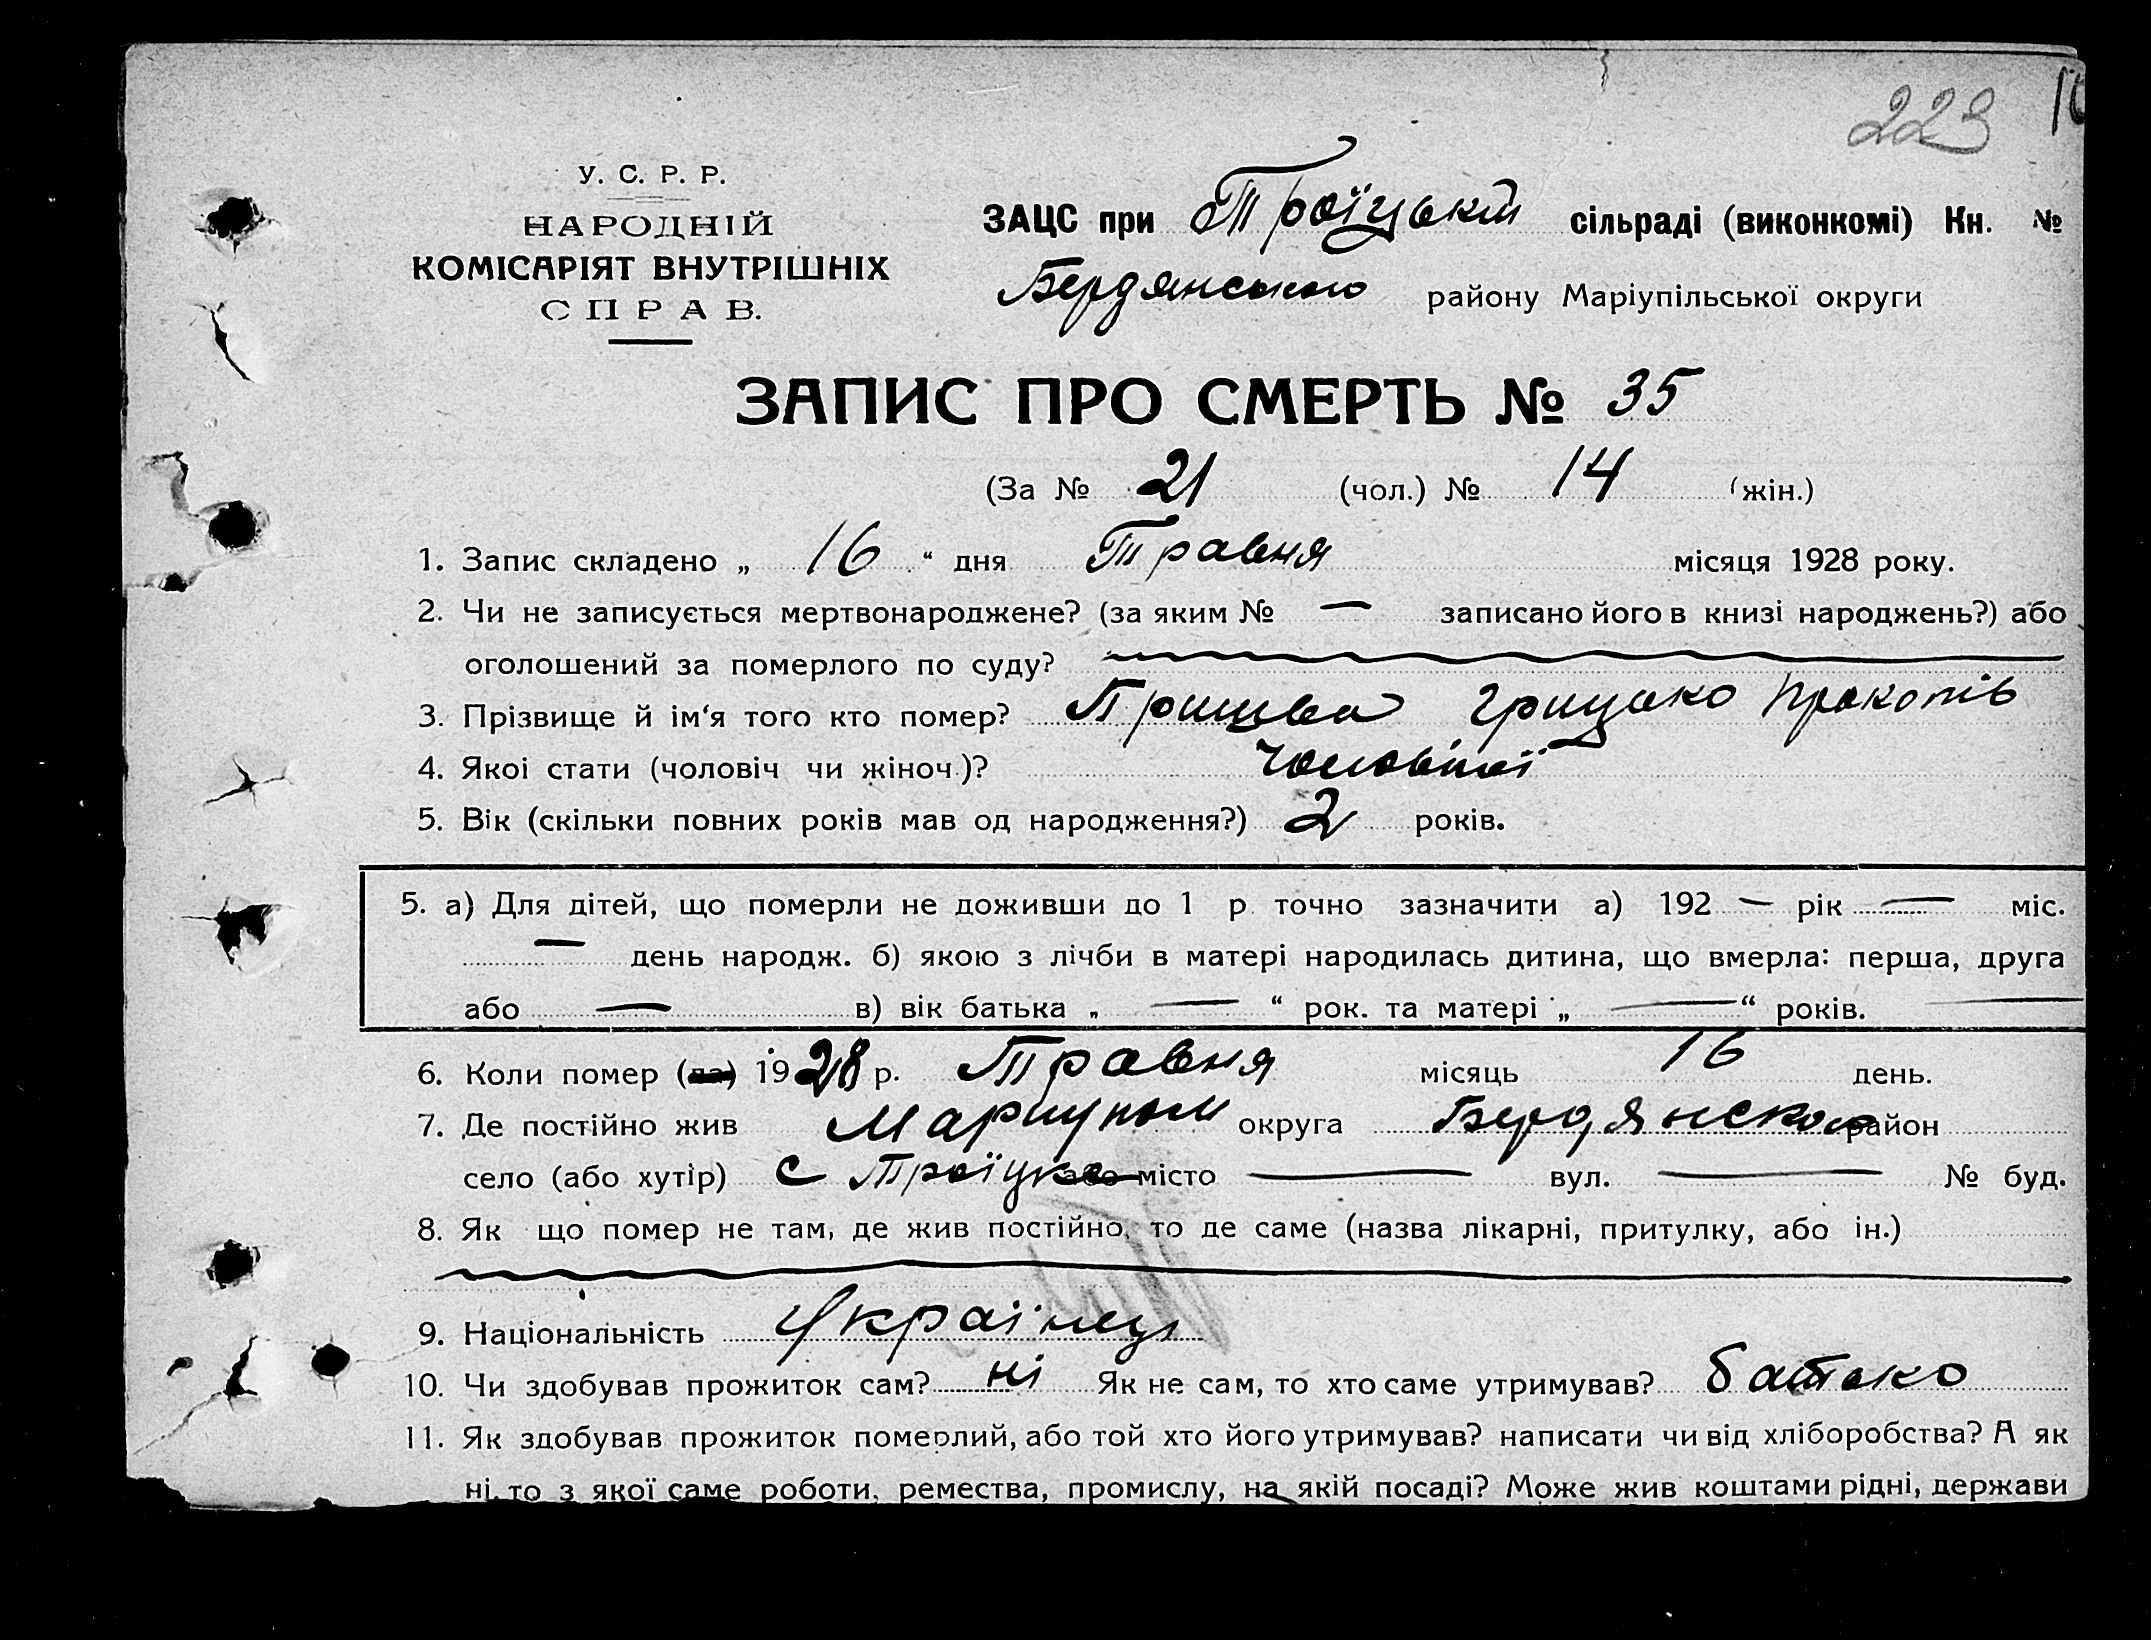 223
У. С. Р. Р.
НАРОДНІЙ
КОМІСАРІЯТ ВНУТРІШНІХ
СПРАВ.
ЗАЦС при Троїцькій сільраді (виконкомі) Кн. №
Бердянського району Маріупільської округи
ЗАПИС ПРО СМЕРТЬ № 35
(За № 21 (чол.) № 14 (жін.)
1. Запис складено „ 16 “ дня Травня місяця 1928 року.
2. Чи не записується мертвонароджене? (за яким № — записано його в книзі народжень?) або
оголошений за померлого по суду?
3. Прізвище й ім‘я того кто помер? Грицько Прокопів
4. Якоі стати (чоловіч чи жіноч.)? Чоловічої
5. Вік (скільки повних років мав од народження?) 2 років.
5. а) Для дітей, що померли не доживши до 1 р. точно зазначити а) 192 — рік — міс.
— день народж. б) якою з лічби в матері народилась дитина, що вмерла: перша, друга
або — в) вік батька „ — “ рок. та матері „ — “ років. —
6. Коли помер (ла) 1928 р. Травня місяць 16 день.
7. Де постійно жив округа район
село (або хутір) с Троїцке або місто — вул. — № буд.
8. Як що помер не там, де жив постійно, то де саме (назва лікарні, притулку, або ін.)
9. Національність Українець
10. Чи здобував прожиток сам? ні Як не сам, то хто саме утримував? батько
11. Як здобував прожиток померлий, або той хто його утримував? написати чи від хліборобства? А як
ні, то з якої саме роботи, ремества, промислу, на якій посаді? Може жив коштами рідні, держави